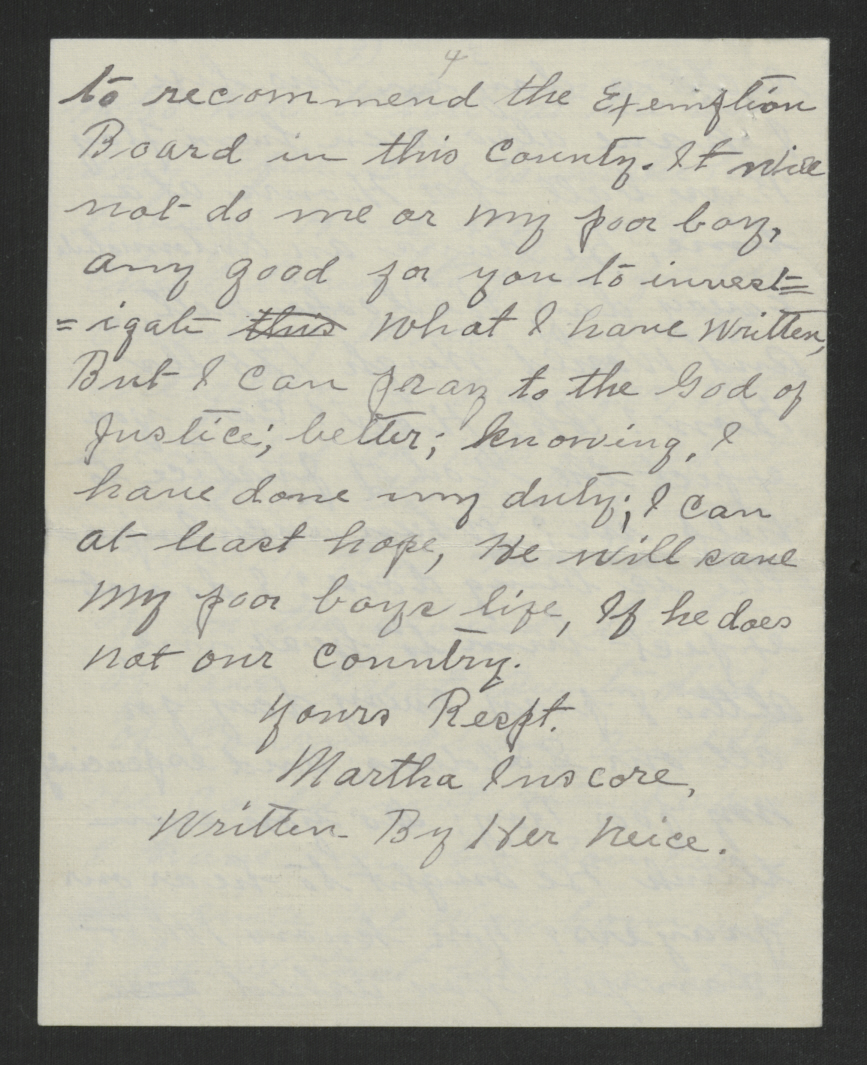 4
to recommend the Exemption
Board in this County. It will
not do me or my poor boy,
any good for you to invest=
=igate this What I have Written,
But I can pray to the God of
Justice; better; knowing, I
have done my duty; I can
at least hope, He will save
My poor boys life, If he does
not our Country.
Yours Respt.
Martha Inscore,
Written By Her Neice.